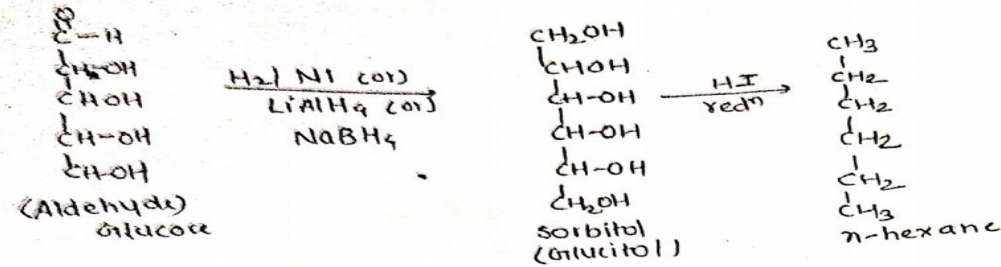 O
C-H
CH-OH
CHOH
CH-OH
CH-OH
(Aldehyde)
Glucose
H2/Ni (or)
LiAlH4 (or)
NaBH4
CH2OH
CHOH
CH-OH
CH-OH
CH-OH
CH2OH
sorbitol
(Glucitol)
HI
redn
CH3
CH2
CH2
CH2
CH2
CH3
n-hexane